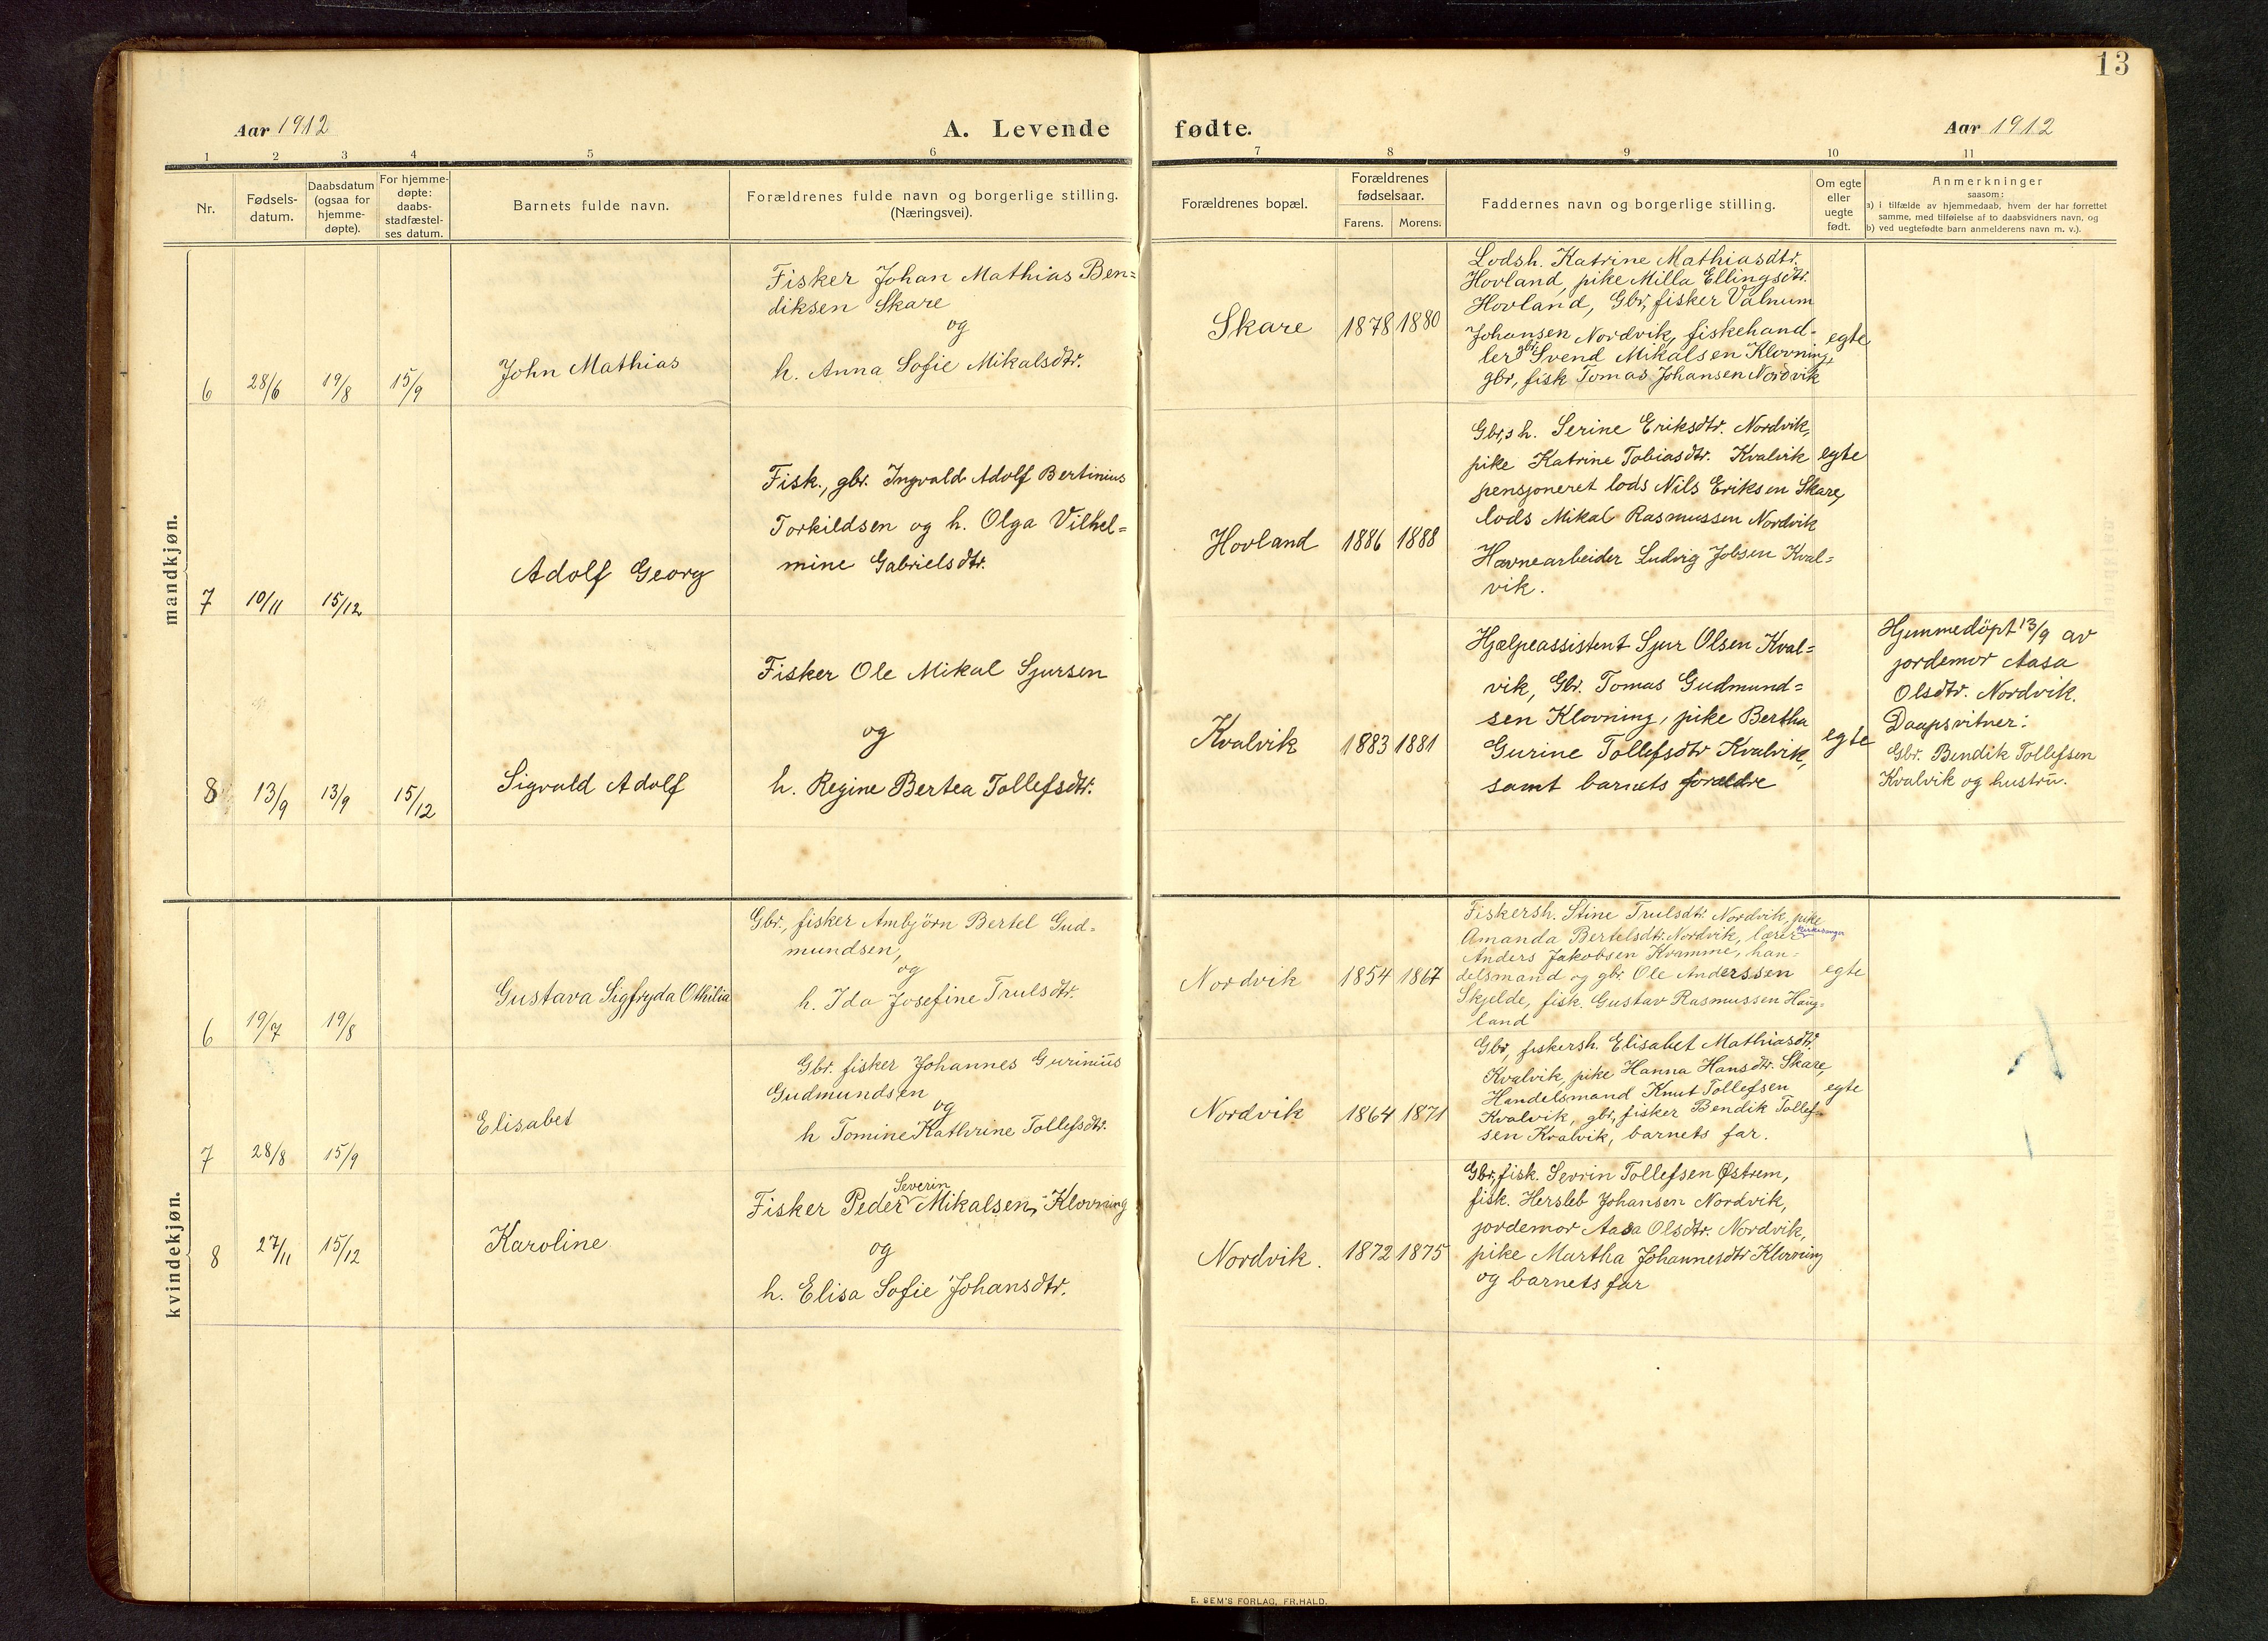 13
Aar 1912
A. Levende fødte.
Aar 1912
1 2 3 4 5 6 7 8 9 10 11
Nr.
Fødsels-
datum.
Daabsdatum
(ogsaa for
hjemme-
døpte).
For hjemme-
døpte:
daabs-
stadfæstel-
ses datum.
Barnets fulde navn.
Forældrenes fulde navn og borgerlige stilling.
(Næringsvei).
Forældrenes bopæl.
Forældrenes
fødselsaar.
Farens. Morens.
Faddernes navn og borgerlige stilling.
Om egte
eller
uegte
født.
Anmerkninger
saasom:
a) i tilfælde av hjemmedaab, hvem der har forrettet
samme, med tilføielse af to daabsvidners navn, og
b) ved uegtefødte barn anmelderens navn m. v.).
mandkjøn.
6 28/6 19/8 15/9
John Mathias
Fisker Johan Mathias Ben=
diksen Skare
og
h. Anna Sofie Mikalsdtr.
Skare
1878 1880
Lodsh. Katrine Mathiasdtr.
Hovland, pike Milla Ellingsdtr.
Hovland, Gbr, fisker Valnum
Johansen Nordvik, fiskehand-
ler gbr. Svend Mikalsen Klovning,
gbr, fisk Tomas Johansen Nordvik
egte
7 10/11 15/12
Adolf Georg
Fisk., gbr. Ingvald Adolf Bertinius
Torkildsen og h. Olga Vilhel=
mine Gabrielsdtr.
Hovland
1886 1888
Gbr,s h. Serine Eriksdtr. Nordvik,
pike Katrine Tobiasdtr. Kvalvik
pensjoneret lods Nils Eriksen Skare,
lods Mikal Rasmussen Nordvik
Havnearbeider Ludvig Jobsen Kval=
vik.
egte
8 13/9 13/9 15/12
Sigvald Adolf
Fisker Ole Mikal Sjursen
og
h. Regine Bertea Tollefsdtr.
Kvalvik
1883 1881
Hjælpeassistent Sjur Olsen Kval=
vik, Gbr. Tomas Gudmund=
sen Klovning, pike Bertha
Gurine Tollefsdtr Kvalvik,
samt barnets forældre
egte
Hjemmedöpt 13/9 av
jordemor Aasa
Olsdtr. Nordvik.
Daapsvitner:
Gbr. Bendik Tollefsen
Kvalvik og hustru.
kvindekjøn.
6 19/7 19/8
Gustava Sigfryda Othilia
Gbr., fisker Ambjörn Bertel Gud=
mundsen,
og
h. Ida Josefine Trulsdtr.
Nordvik
1854 1867
Fiskersh. Stine Trulsdtr Nordvik, pike
Amanda Bertelsdtr. Nordvik, lærer kirkesanger
Anders Jakobsen Kvamme, han-
delsmand og gbr Ole Anderssen
Skjelde, fisk. Gustav Rasmussen Haug=
land
egte
7 28/8 15/9
Elisabet
Gbr. fisker Johannes Gurinius
Gudmundsen
og
h Tomine Kathrine Tollefsdtr.
Nordvik
1864 1871
Gbr, fiskersh. Elisabet Mathiasdtr.
Kvalvik, pike Hanna Hansdtr. Skare,
Handelsmand Knut Tollefsen
Kvalvik, gbr, fisker Bendik Tollef-
sen Kvalvik, barnets far.
egte
8 27/11 15/12
Karoline
Severin
Fisker Peder Mikalsen, Klovning
og
h. Elisa Sofie Johansdtr.
Nordvik.
1872 1875
Gbr, fisk. Sevrin Tollefsen Østrem,
fisk. Hersleb Johansen Nordvik,
jordemor Aasa Olsdtr. Nordvik,
pike Martha Johannesdtr Klovning
og barnets far
E. SEM'S FORLAG, FR.HALD.